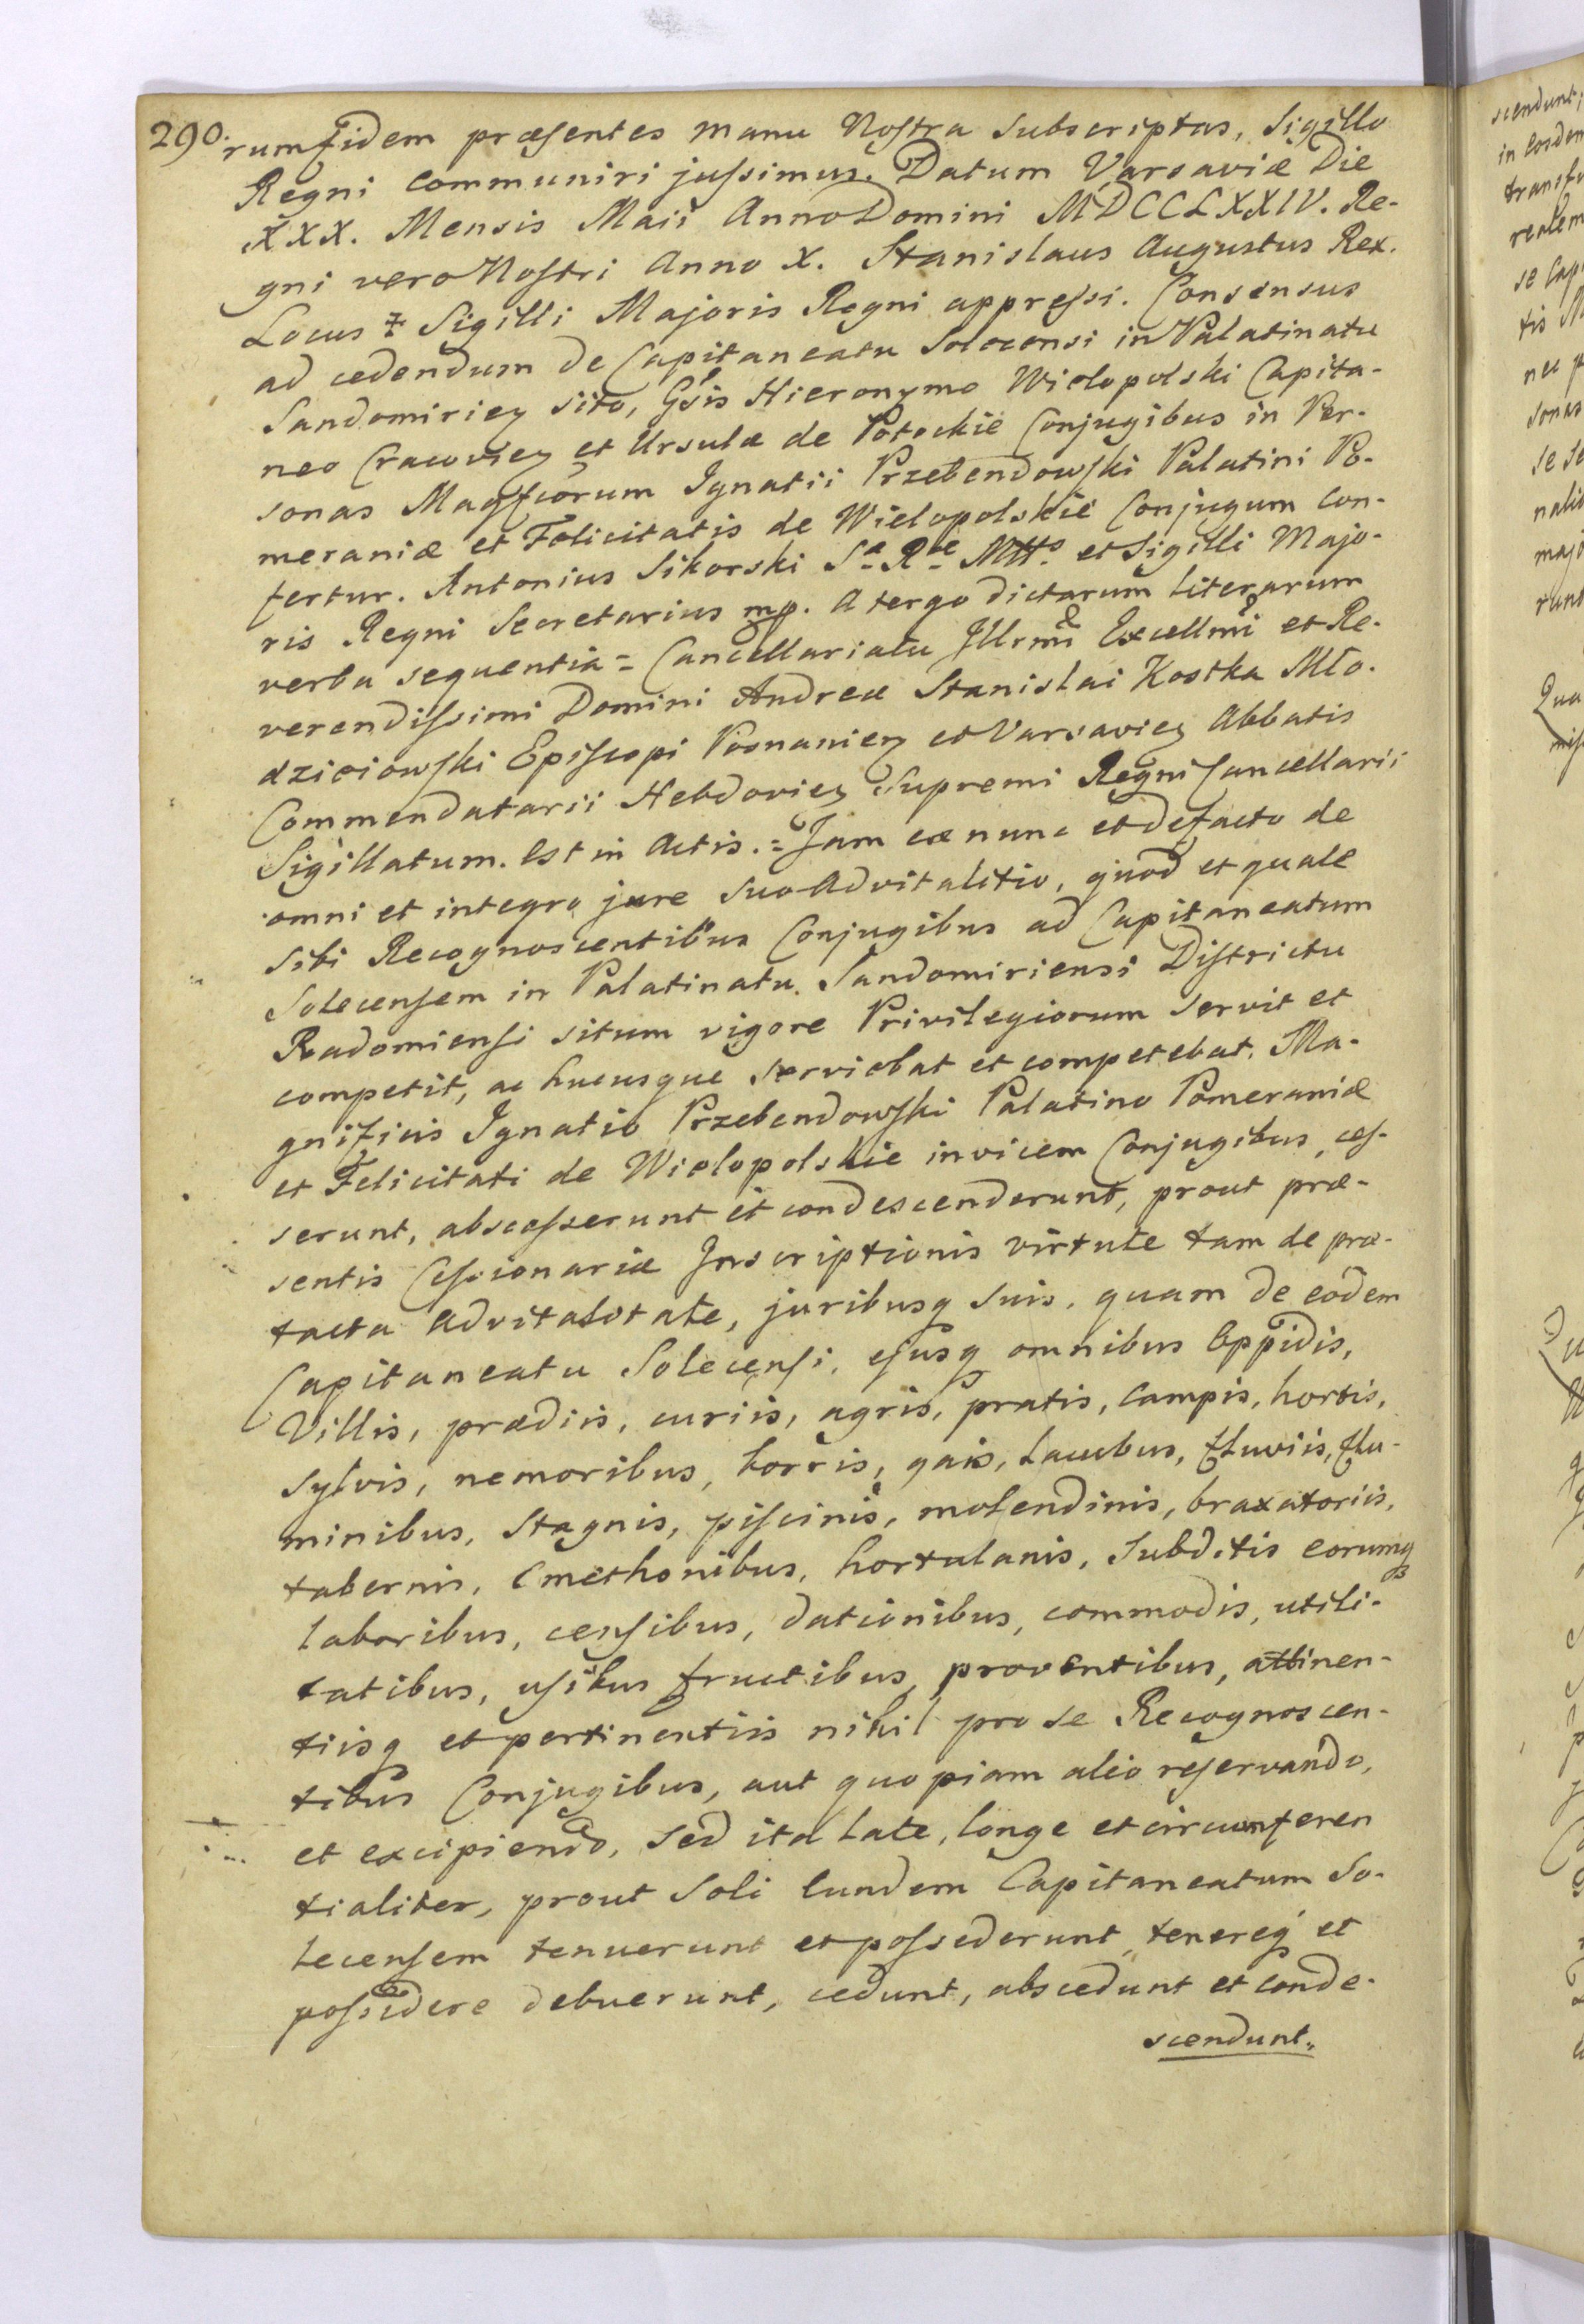 290. rum fidem præsentes manu Nostra Subscriptas, Sigillo
Regni communiri jussimus. Datum Varsaviæ Die
XXX. Mensis Maii Anno Domini MDCCLXXIV. Re-
gni vero Nostri Anno X. Stanislaus Augustus Rex.
Locus ‡ Sigilli Majoris Regni appressi. Consensus
ad cedendum de Capitaneatu Solecensi in Palatinatu
Sandomirien sito, Gsis Hieronymo Wielopolski Capita-
neo Cracovien et Ursulæ de Potockie Conjugibus in Per-
sonas Magficorum Ignatii Przebendowski Palatini Po-
meraniæ et Felicitatis de Wielopolskie Conjugum Con-
fertur. Antonius Sikorski S. R. Mtts. et Sigilli Majo-
ris Regni Secretarius mp. A tergo dictarum literarum
verba sequentia = Cancellariatu Illrmi Excellmi et Re-
verendissimi Domini Andreæ Stanislai Kostka Mło-
dzieiowski Episcopi Posnanien et Varsavien Abbatis
Commendatarii Hebdovien Supremi Regni Cancellarii
Sigillatum. est in Actis. = Jam ex nunc et defacto de
omni et integro jure suo Advitalitio, quod et quale
sibi Recognoscentibus Conjugibus ad Capitaneatum
Solecensem in Palatinatu Sandomiriensi Districtu
Radomiensi situm vigore Privilegiorum servit et
competit, ac hucusque serviebat et competebat, Ma-
gnificis Ignatio Przebendowski Palatino Pomeraniæ
et Felicitati de Wielopolskie invicem Conjugibus, ces-
serunt, abscesserunt et condescenderunt, prout præ-
sentis Cessionariæ Inscriptionis virtute tam de præ-
tacta Advitalitate, juribusq suis, quam de eodem
Capitaneatu Solecensi, ejusq omnibus Oppidis,
Villis, prædiis, curiis, agris, pratis, campis, hortis,
sylvis, nemoribus, borris, gais, lacubus, fluviis, flu-
minibus, Stagnis, piscinis, molendinis, braxatoriis,
tabernis, Cmethonibus, hortulanis, Subditis eorumq
laboribus, censibus, dationibus, commodis, utili-
tatibus, usibus fructibus, proventibus, attinen-
tiisq et pertinentiis nihil pro se Recognoscen-
tibus Conjugibus, aut quopiam alio reservando,
et excipiendo, sed ita late, longe et circumferen
tialiter, prout Soli eundem Capitaneatum So-
lecensem tenuerunt et possederunt, tenereq et
possidere debuerunt, cedunt, abscedunt et conde-
scendunt.
scendunt,
in eosdem